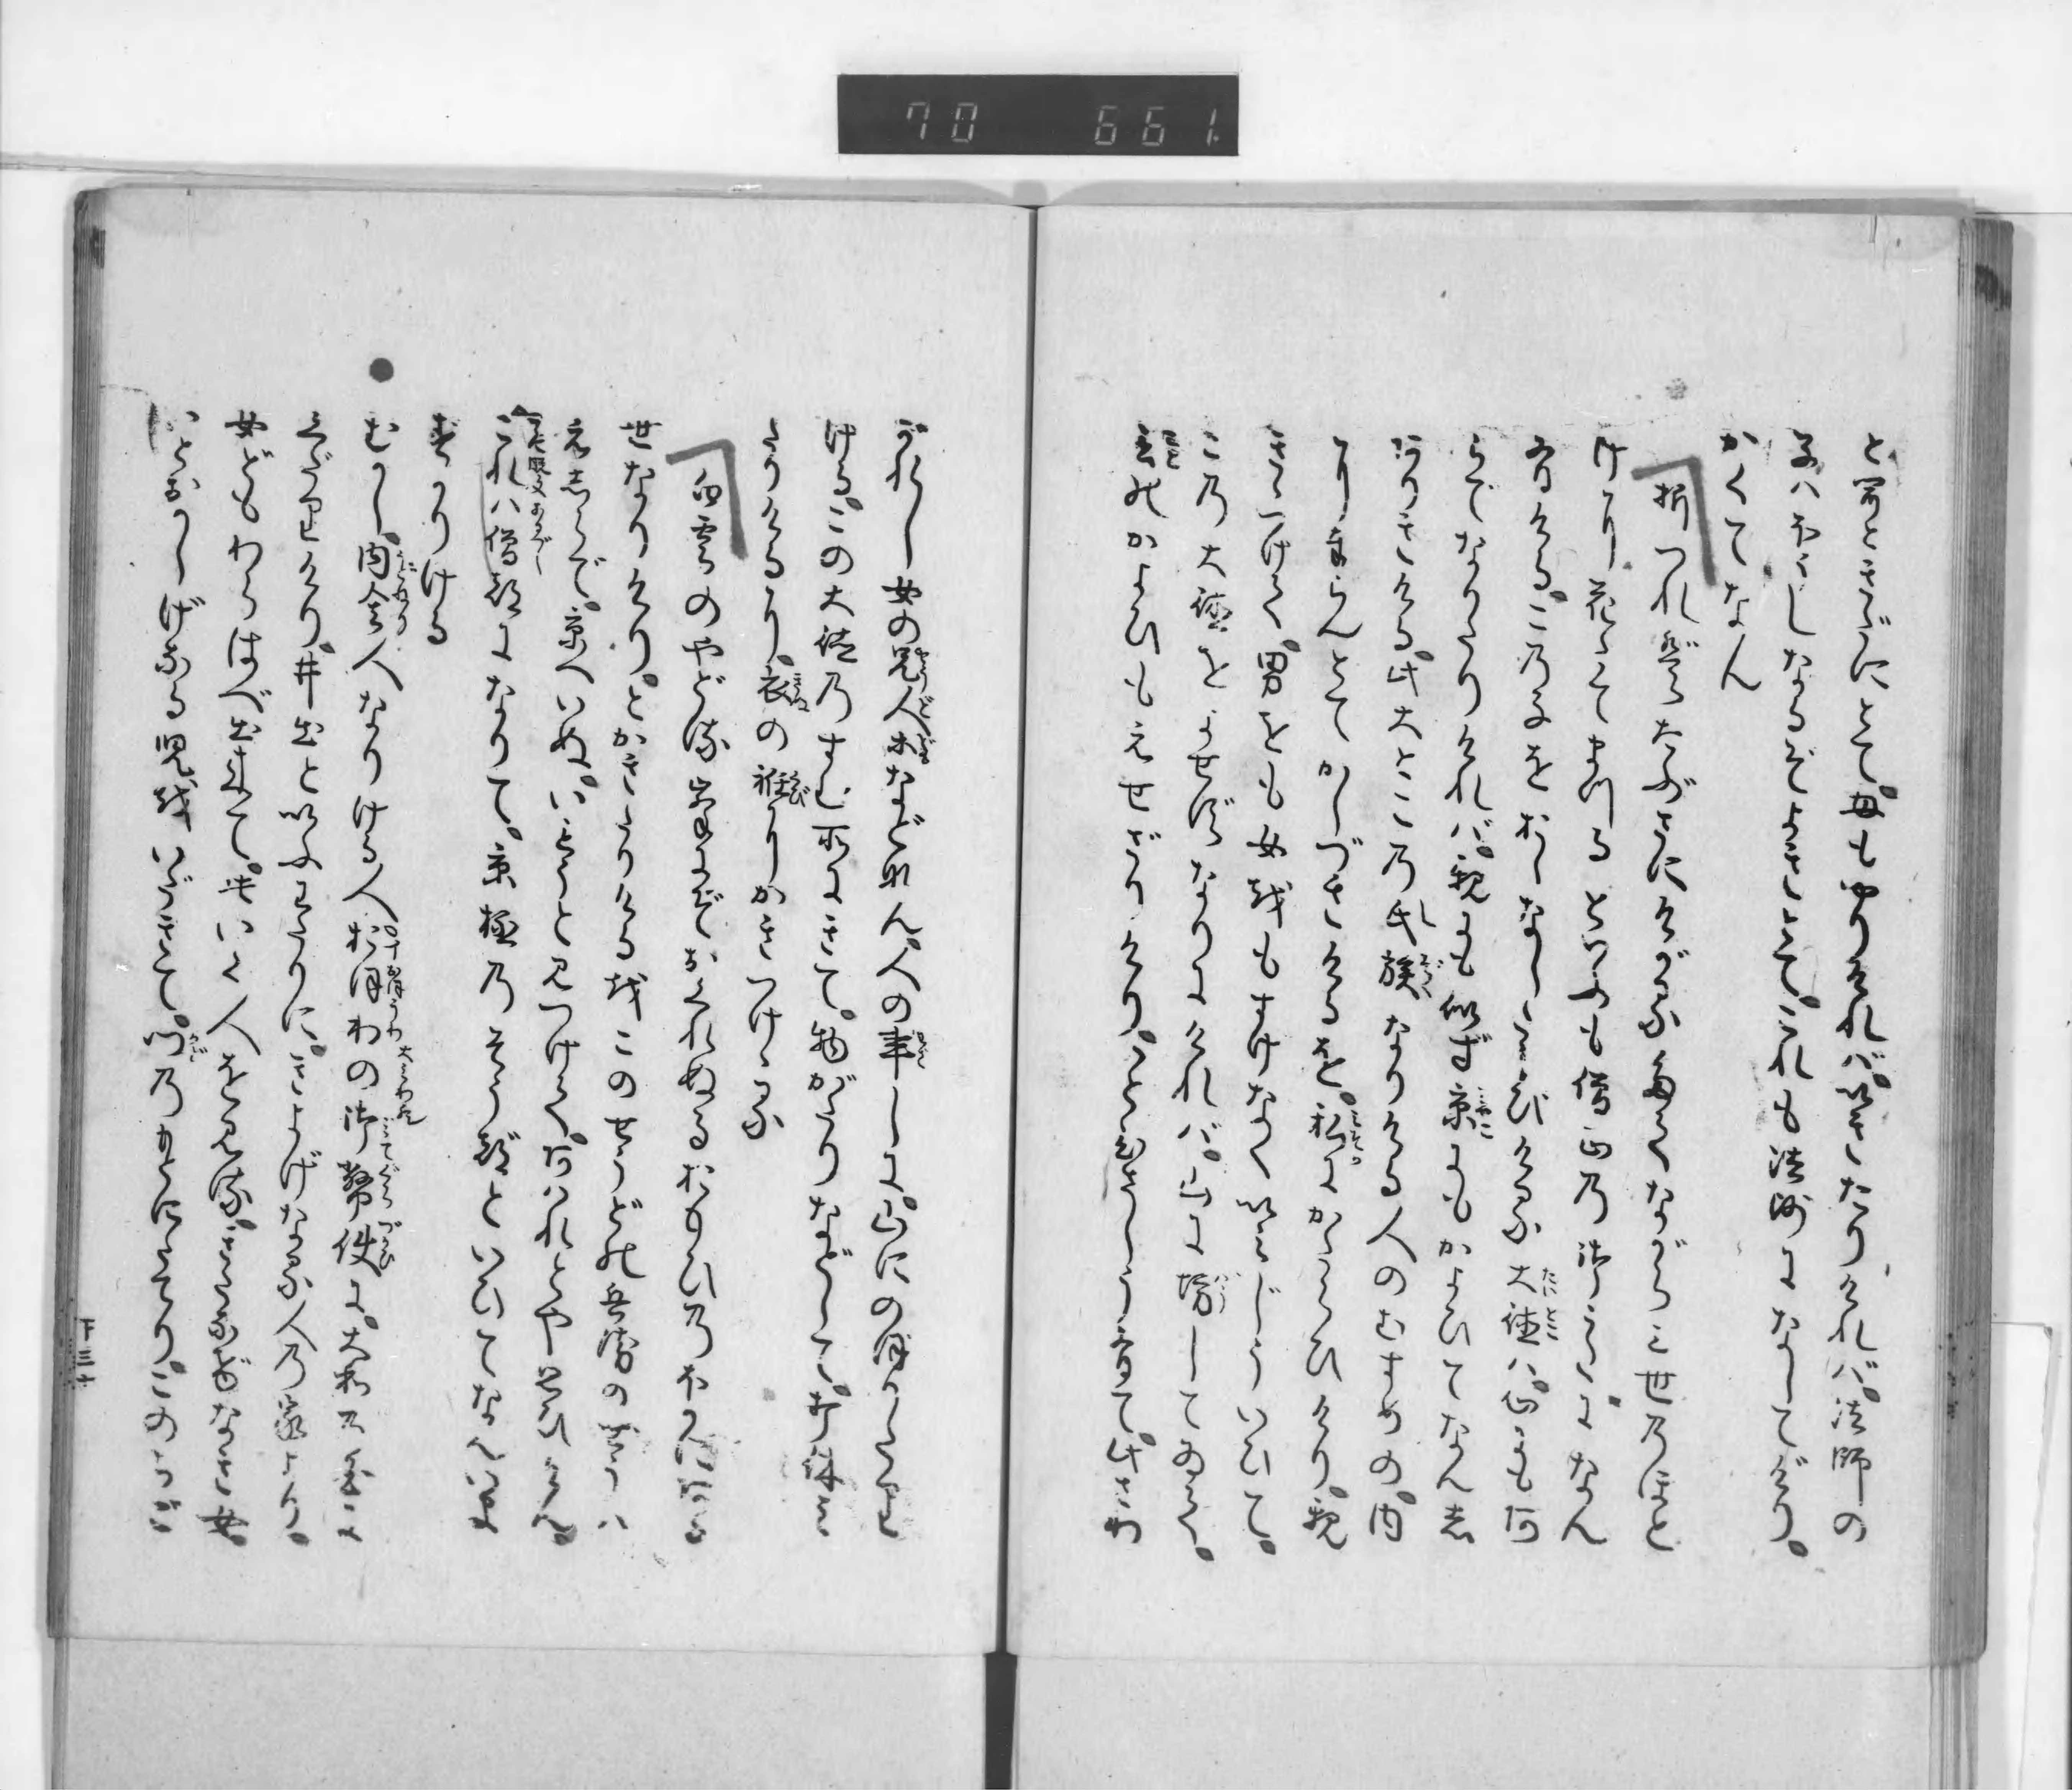 70 661
と思とき▢にとて。母もやりければ。いきたりければ。法師の
子ハ法しなるぞよきとて。これも法師になしてけり。
かくてなん
折つればたぶさにけがるたてながらみ世乃ほと
けに花たてまつるといふも僧正乃御うたになん
有ける。この子をおしなしたうびける大徳ハ。心にも
らでなりたりければ。親にも似ず京にもかよひてなんし
ありきける。此大とこ乃氏族なりける人のむすめの。内
に奉らんとてかしづきけるを。私にかたらひけり。親
きゝつけて。男をも女をもすげなくいみじういひて。
こ乃大徳をよせずなりにければ。山に坊してゐて。
言のかよひもえせざりけり。いと久しう有て。此さわ
がれし女の兄人どもなどなん。人の事しに。山にのぼりたり
ける。この大徳乃すむ所にきて。物がたりなどして。打休み
たりけるに。衣の袵にかきつけゝる
白雲のやどる峯にぞおくれぬるおもひ乃外にある
世なりけり。とかきたりけるをこのせうどの兵衛のぞうハ
えしらで。京へいぬ。いもうと見つけて。あはれとや思ひけん。
これハ僧都になりて。京極乃そう都といひてなんいま
すかりける
むかし。内舎人なりける人おほわの御幣使に。大和乃国に
くだりけり。井出といふわたりに。きよげなる人乃家より。
女どもわらはべ出来て。此いく人を見る。きたなげなき女。
いとおかしげなる児をいだきて。門乃もとにたてり。このちご
下三十